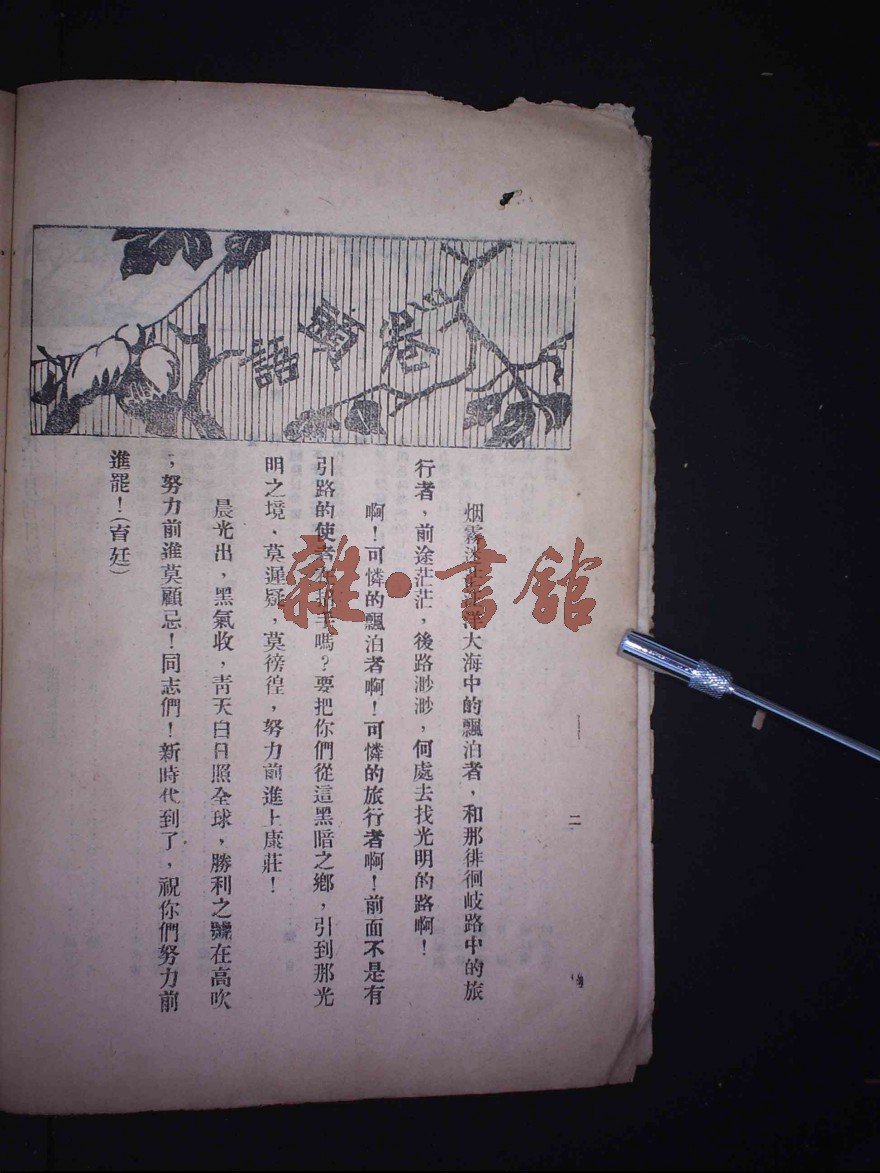 卷頭語
烟霧迷茫洋大海中的飄泊者，和那徘徊岐路中的旅
行者，前途茫茫，後路渺渺，何處去找光明的路啊！
啊！可憐的飄泊者啊！可憐的旅行者啊！前面不是有
引路的使者在手嗎？要把你們從這黑暗之鄉，引到那光
明之境，莫遲疑，莫徬徨，努力前進上康莊！
晨光出，黑氣收，靑天白日照全球，勝利之號在高吹
，努力前進莫顧忌！同志們！新時代到了，祝你們努力前
進罷！（育廷）
二
雜·書館